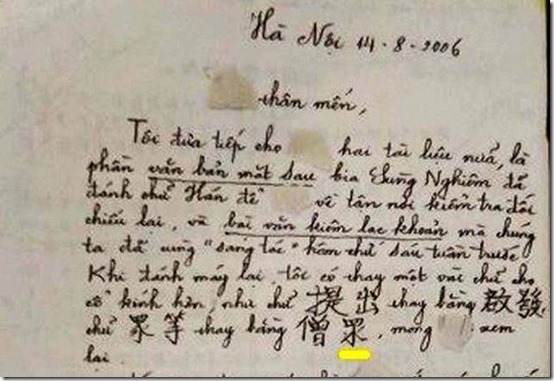 Hà Nội 14-8-2006
thân mến,
Tôi đưa tiếp cho hai tài liệu nữa, là
phần văn bản mặt sau bia Sùng Nghiêm đã
đánh chữ Hán để về tận nơi kiểm tra đối
chiếu lại, và bài văn kiêm lạc khoản mà chúng
ta đã cùng "sáng tác" hôm chủ sáu tuần trước
Khi đánh máy lại, tôi có thay một vài chữ cho
cổ kính hơn, như chữ 提出 thay bằng 啟發,
chữ 眾等 thay bằng 僧眾, mong xem
lại.